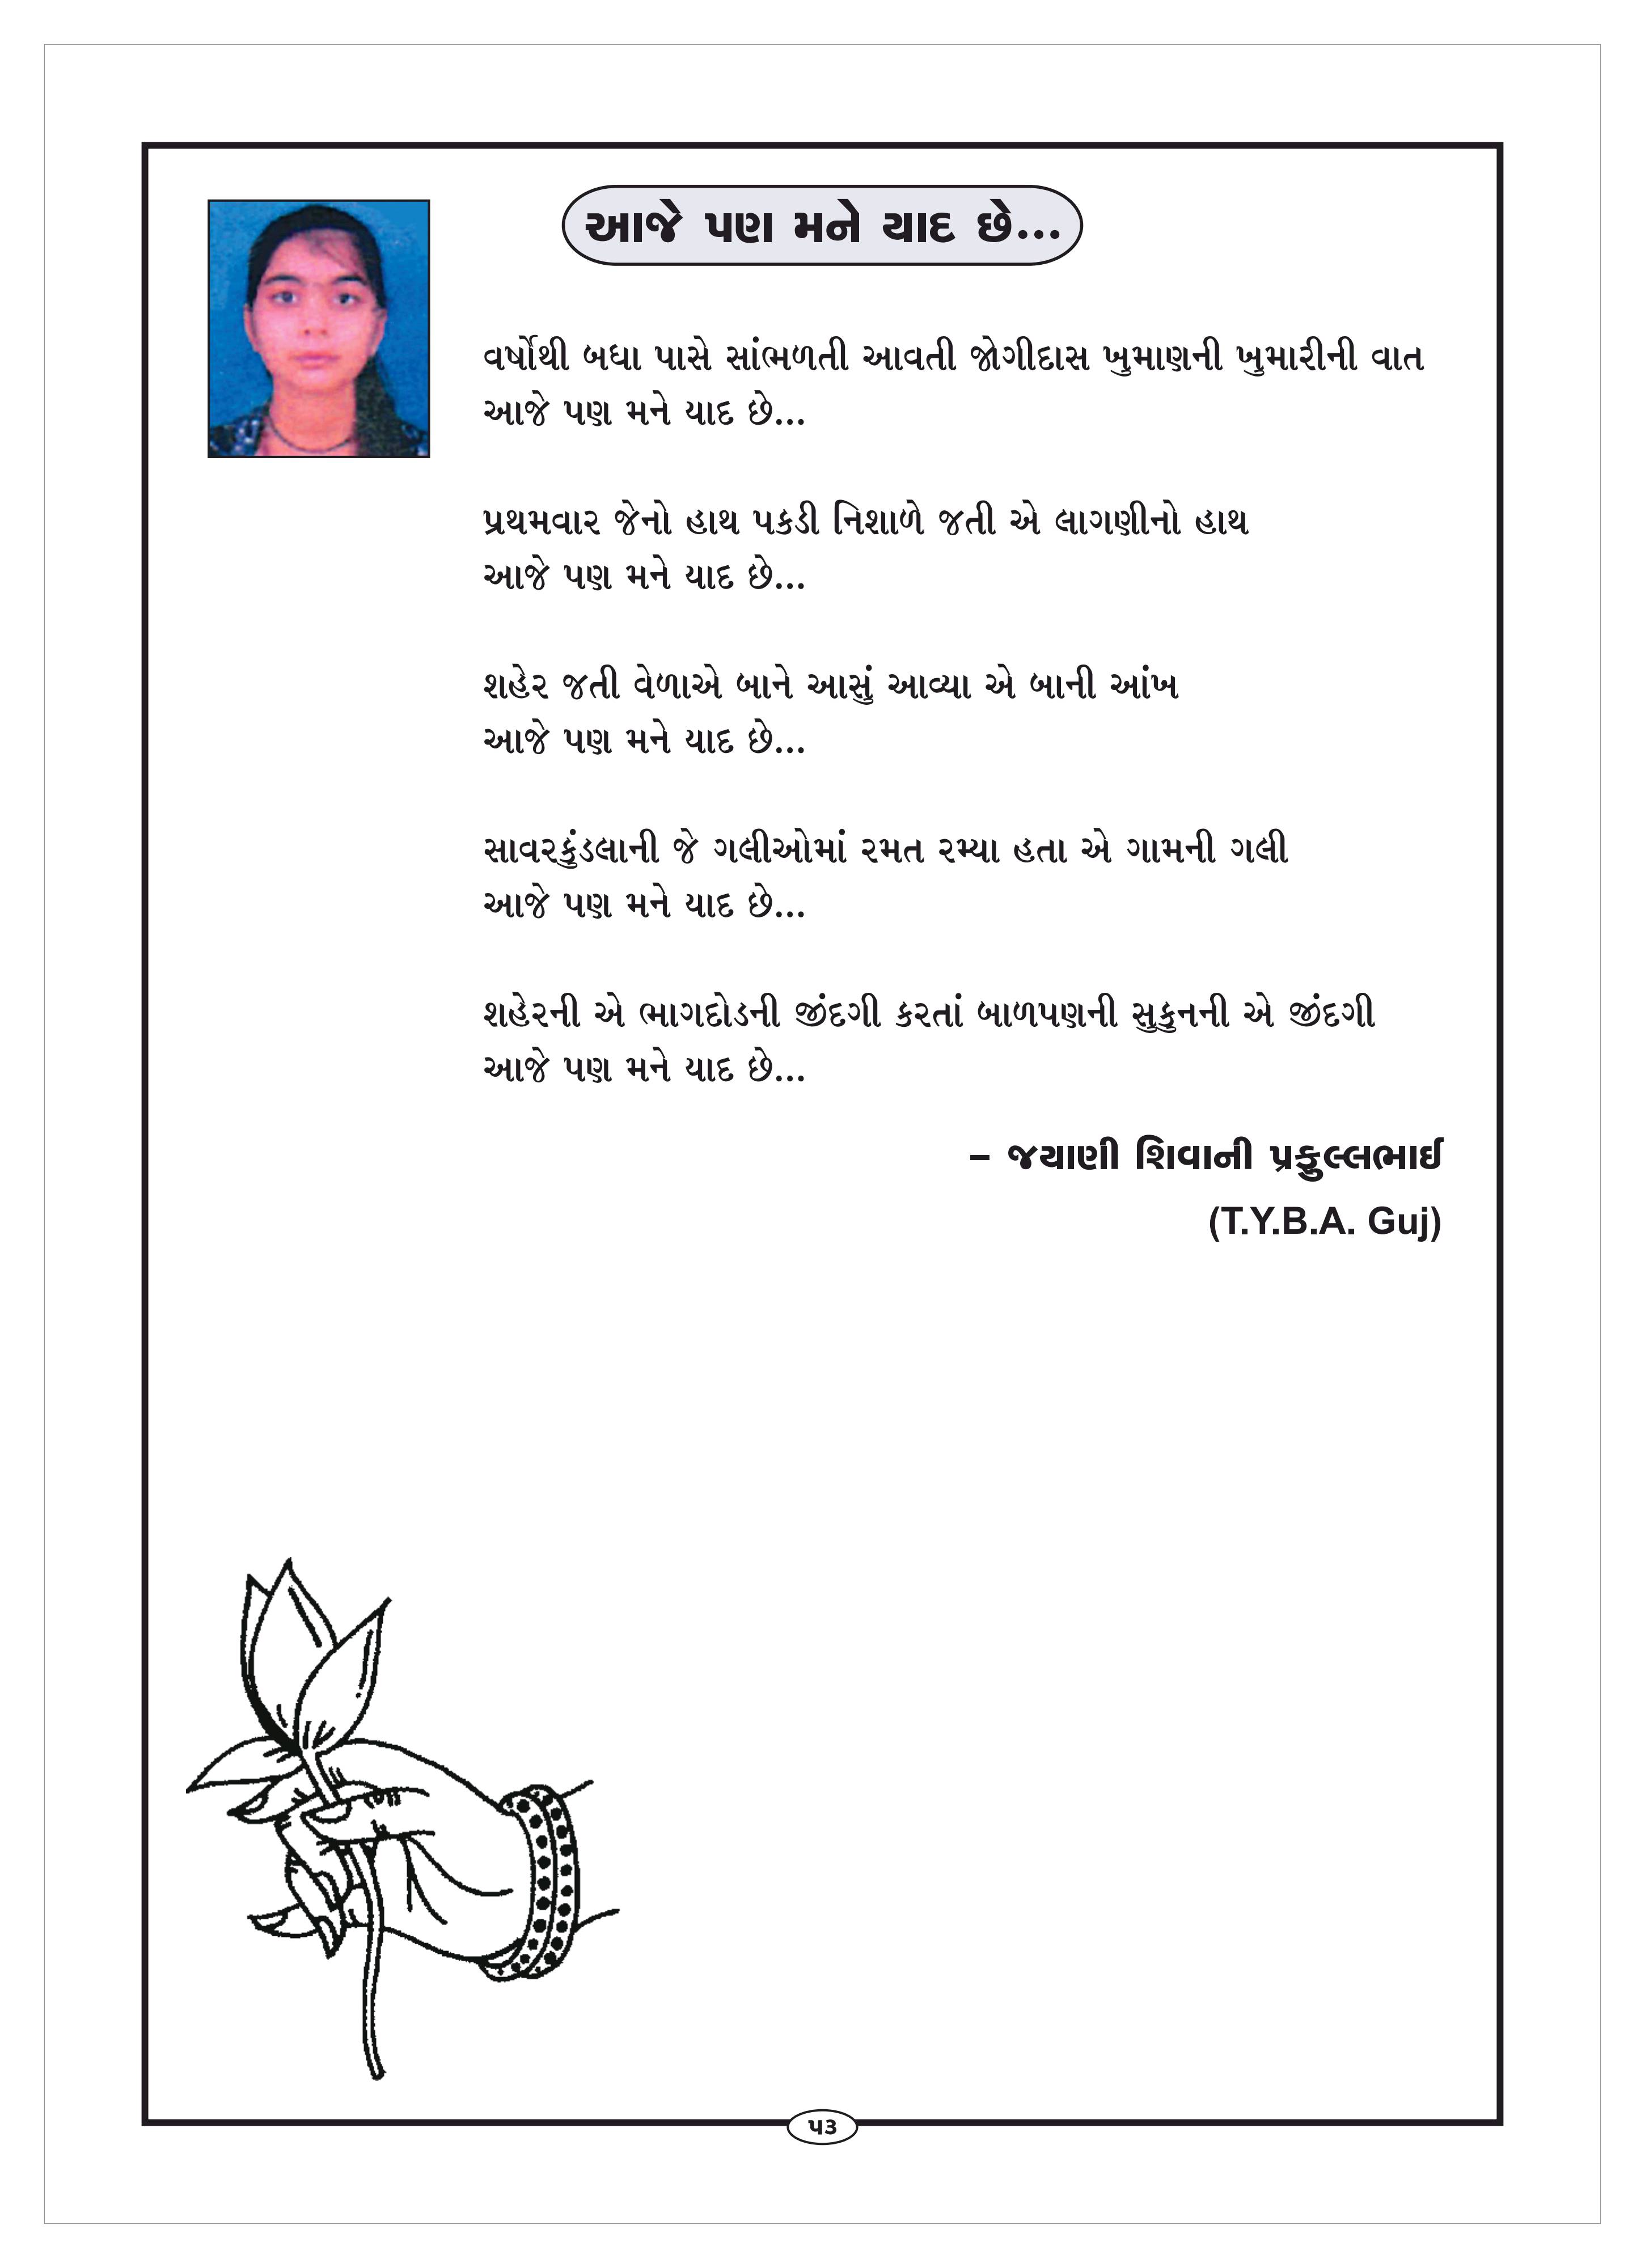 આજે પણ મને યાદ છે...
વર્ષોથી બધા પાસે સાંભળતી આવતી જોગીદાસ ખુમાણની ખુમારીની વાત
આજે પણ મને યાદ છે...
પ્રથમવાર જેનો હાથ પકડી નિશાળે જતી એ લાગણીનો હાથ
આજે પણ મને યાદ છે...
શહેર જતી વેળાએ બાને આસું આવ્યા એ બાની આંખ
આજે પણ મને યાદ છે...
સાવરકુંડલાની જે ગલીઓમાં રમત રમ્યા હતા એ ગામની ગલી
આજે પણ મને યાદ છે...
શહેરની એ ભાગદોડની જીંદગી કરતાં બાળપણની સુકુનની એ જીંદગી
આજે પણ મને યાદ છે...
– જયાણી શિવાની પ્રફુલ્લભાઈ
(T.Y.B.A. Guj)
૫૩